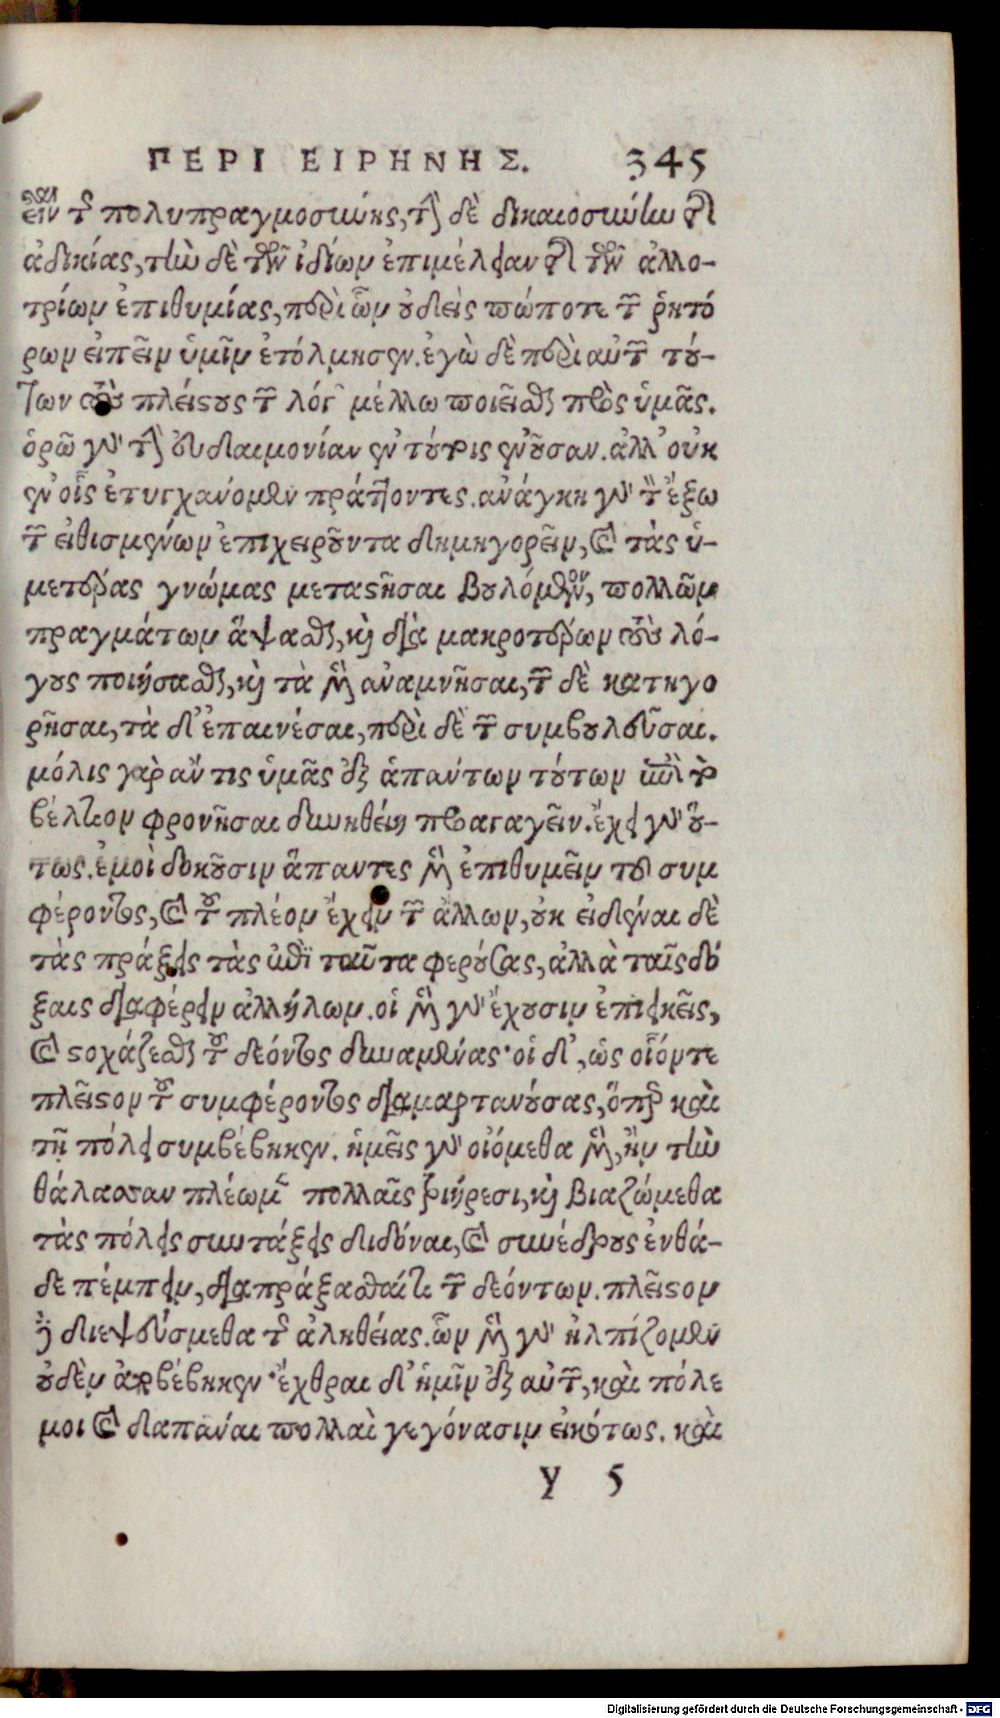 ΠΕΡΙ ΕΙΡΗΝΗΣ. 345
τῆς πολυπραγμοσύνης, τὴν δὲ δικαιοσύνην τῆς
ἀδικίας, τὴν δὲ τῶν ἰδίων ἐπιμέλειαν τῆς τῶν ἀλλο-
τρίων ἐπιθυμίας, περὶ ὧν οὐδεὶς πώποτε τῶν ῥητό
ρων εἰπεῖν ὑμῖν ἐτόλμησεν. ἐγὼ δὲ περὶ αὐτῶν τού-
των τοὺς πλείστους τῶν λόγων μέλλω ποιεῖσθαι πρὸς ὑμᾶς.
ὁρῶ γὰρ τὴν εὐδαιμονίαν ἐν τούτοις ἐνοῦσαν. ἀλλ' οὐκ
ἐν οἷς ἐτυγχάνομεν πράττοντες. ἀνάγκη γὰρ τὸν ἔξω
τῶν εἰθισμένων ἐπιχειροῦντα δημηγορεῖν, καὶ τὰς ὑ-
μετέρας γνώμας μεταστῆσαι βουλόμενον, πολλῶν
πραγμάτων ἅψασθαι, καὶ διὰ μακροτέρων τοὺς λό-
γους ποιήσασθαι, καὶ τὰ μὲν ἀναμνῆσαι, τῶν δὲ κατηγο
ρῆσαι, τὰ δ' ἐπαινέσαι, περὶ δὲ τῶν συμβουλεῦσαι.
μόλις γὰρ ἄν τις ὑμᾶς ἐξ ἁπάντων τούτων ἐπὶ τὸ
βέλτιον φρονῆσαι δυνηθείη προαγαγεῖν. ἔχει γὰρ οὕ-
τως. ἐμοὶ δοκοῦσιν ἅπαντες μὲν ἐπιθυμεῖν τοῦ συμ
φέροντος, καὶ τοῦ πλέον ἔχειν τῶν ἄλλων, οὐκ εἰδέναι δὲ
τὰς πράξεις τὰς ἐπὶ ταῦτα φερούσας, ἀλλὰ ταῖς δό
ξαις διαφέρειν ἀλλήλων. οἱ μὲν γὰρ ἔχουσιν ἐπιεικεῖς,
καὶ στοχάζεσθαι τοῦ δέοντος δυναμένας· οἱ δ', ὡς οἷόν τε
πλεῖστον τοῦ συμφέροντος διαμαρτανούσας, ὅπερ καὶ
τῇ πόλει συμβέβηκεν. ἡμεῖς γὰρ οἰόμεθα μέν, ἢν τὴν
θάλατταν πλέωμεν πολλαῖς τριήρεσι, καὶ βιαζώμεθα
τὰς πόλεις συντάξεις διδόναι, καὶ συνέδρους ἐνθά-
δε πέμπειν, διαπράξασθαί τι τῶν δεόντων. πλεῖστον
δὲ διεψεύσμεθα τῆς ἀληθείας. ὧν μὲν γὰρ ἠλπίζομεν
οὐδὲν ἀποβέβηκεν· ἔχθραι δ' ἡμῖν ἐξ αὐτῶν, καὶ πόλε
μοι καὶ δαπάναι πολλαὶ γεγόνασιν εἰκότως. καὶ
Y 5
Digitalisierung gefördert durch die Deutsche Forschungsgemeinschaft - DFG